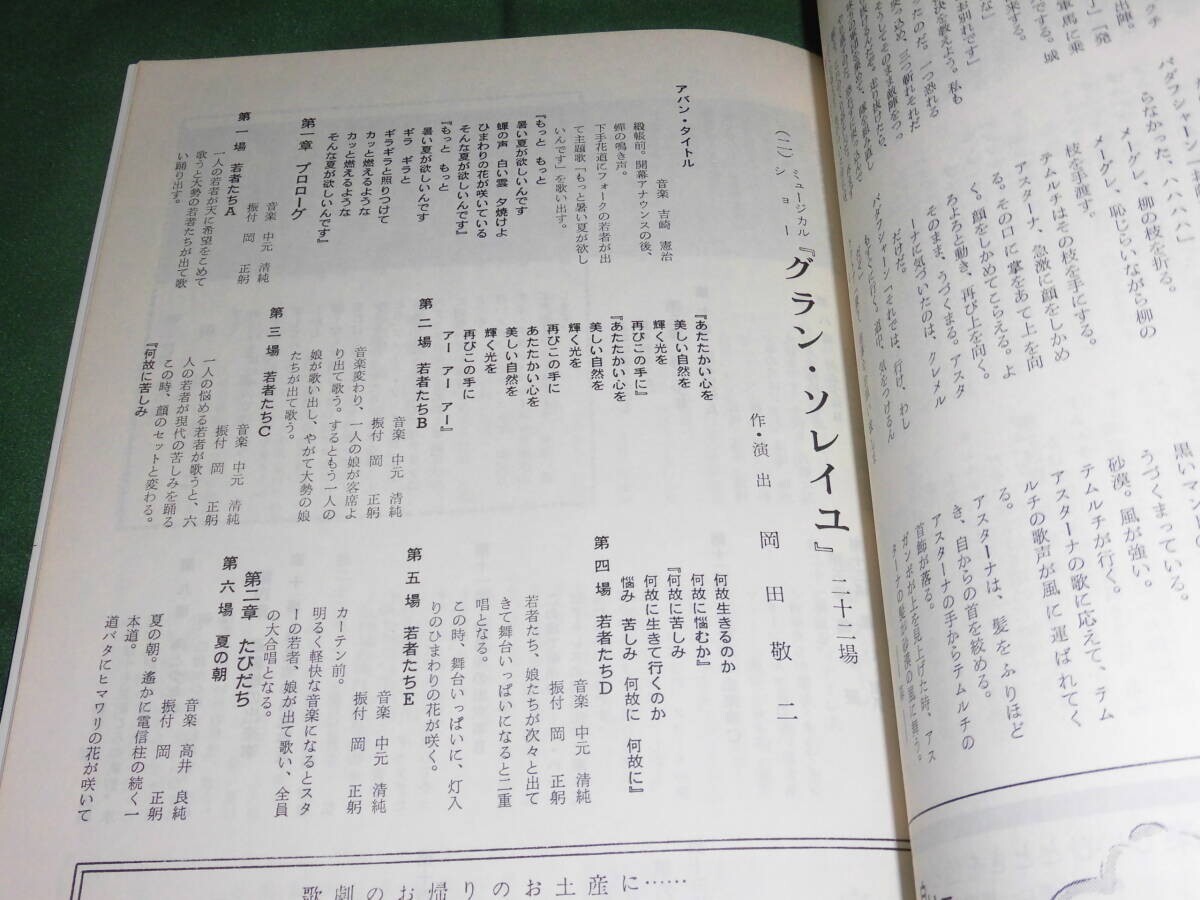 クチ
出陣。
『発
軍馬に乗
でする。城
来する。
お別れです」
な」
決を教えよう。私も
ったのだ。一つ恐れる
使っ込め、三つ斬れそれだ
バダフシャーン
らなかった、ハハハハハ」
メーグレ、柳の枝を折る。
メーグレ、恥じらいながら柳の
枝を手渡す。
テムルチはその枝を手にする。
アスターナ、急激に顔をしかめ
る。その口に掌をあて上を向
く。顔をしかめてこらえる。よ
ろよろと動き、再び上を向く。
そのまま、うづくまる。アスタ
ーナに気づいたのは、クレメル
だけだ。
バダクシーン「それでは、行け、わし
黒いマン
うづくまっている。
砂漠。風が強い。
テムルチが行く。
アスターナの歌に応えて、テム
ルチの歌声が風に運ばれてく
る。
アスターナは、髪をふりほど
き、自からの首を絞める。
アスターナの手からテムルチの
首飾が落る。
ガンボが上を見上げた時、アス
ターナの髪が砂漠の風に舞う。
(二) ミュージカル・ショー
『グラン・ソレイユ』 二十二場
作・演出 岡田敬二
アバン・タイトル
音楽 吉崎 憲治
緞帳前。開幕アナウンスの後、
蝉の鳴き声。
下手花道にフォークの若者が出
て主題歌『もっと暑い夏が欲し
いんです』を歌い出す。
『もっと もっと
暑い夏が欲しいんです
蝉の声 白い雲 夕焼けよ
ひまわりの花が咲いている
そんな夏が欲しいんです』
『もっと もっと
暑い夏が欲しいんです
ギラ ギラと
ギラギラと照りつけて
カッと燃えるような
カッと燃えるような
そんな夏が欲しいんです』
第一章 プロローグ
第一場 若者たちA
音楽 中元 清純
振付 岡 正躬
一人の若者が天に希望をこめて
歌うと大勢の若者たちが出て歌
い踊り出す。
『あたたかい心を
美しい自然を
輝く光を
再びこの手に』
『あたたかい心を
美しい自然を
輝く光を
再びこの手に
あたたかい心を
美しい自然を
輝く光を
再びこの手に
アー アー アー』
第二場 若者たちB
音楽 中元 清純
振付 岡 正躬
音楽変わり、一人の娘が客席よ
り出て歌う。するともう一人の
娘が歌い出し、やがて大勢の娘
たちが出て歌う。
第三場 若者たちC
音楽 中元 清純
振付 岡 正躬
一人の悩める若者が歌うと、六
人の若者が現代の苦しみを踊る
この時、顔のセットと変わる。
『何故に苦しみ
何故生きるのか
何故に悩むか』
『何故に苦しみ
何故に生きて行くのか
悩み 苦しみ 何故に 何故に』
第四場 若者たちD
音楽 中元 清純
振付 岡 正躬
若者たち、娘たちが次々と出て
きて舞台いっぱいになると二重
唱となる。
この時、舞台いっぱいに、灯入
りのひまわりの花が咲く。
第五場 若者たちE
音楽 中元 清純
振付 岡 正躬
カーテン前。
明るく軽快な音楽になるとスタ
ーの若者、娘が出て歌い、全員
の大合唱となる。
第二章 たびだち
第六場 夏の朝
音楽 高井 良純
振付 岡 正躬
夏の朝。遙かに電信柱の続く一
本道。
道バタにヒマワリの花が咲いて
歌劇のお帰りのお土産に……